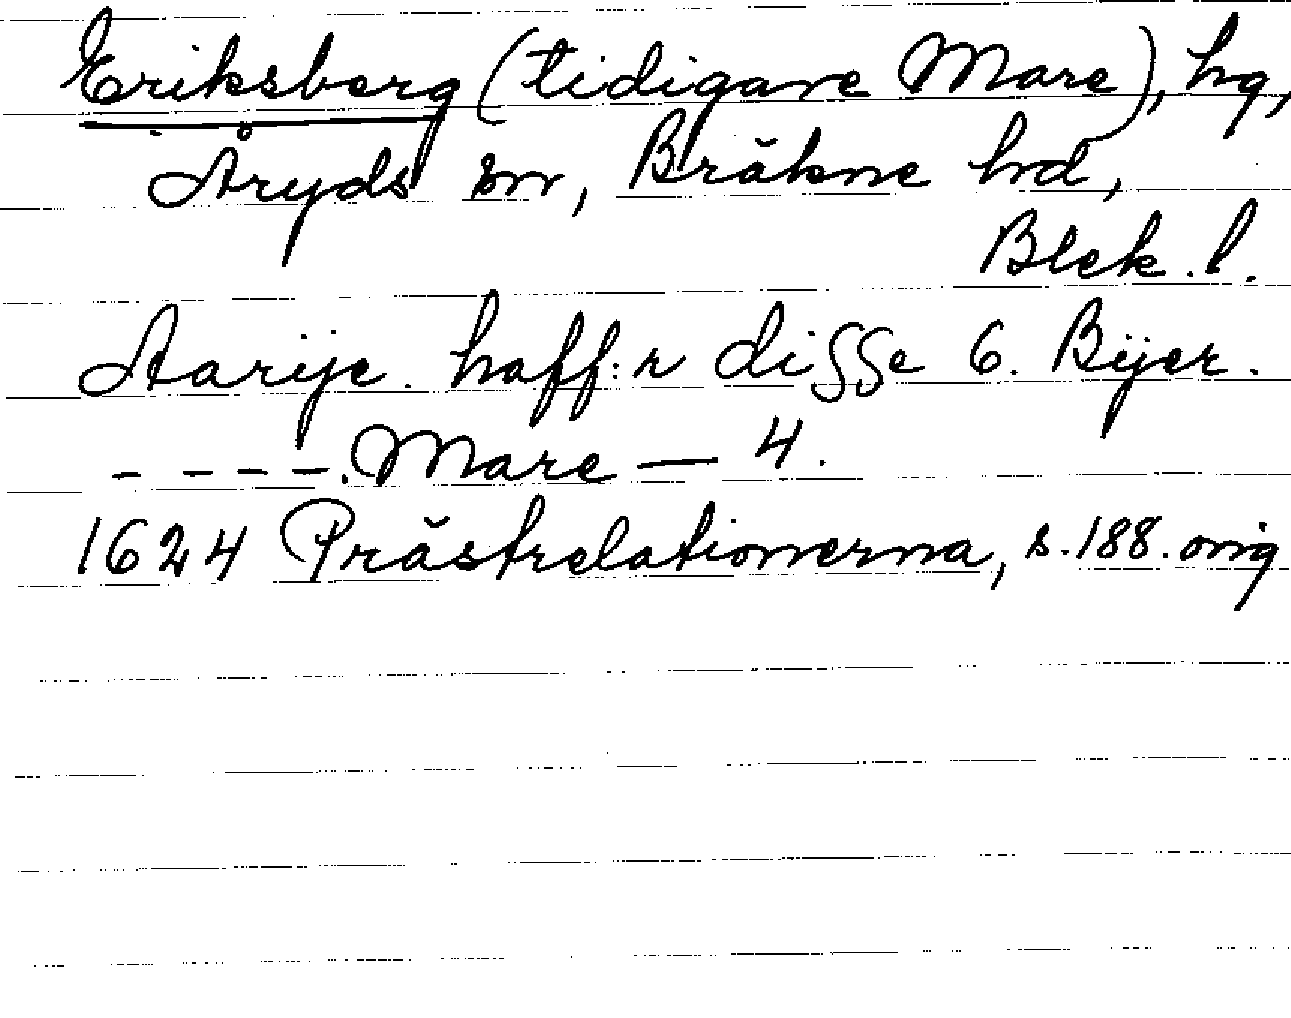 Eriksberg (tidigare Mare), hg,
Åryds sn, Bräkne hd,
Blek. l.
Aarije. haff:r disse 6. Bÿer.
- - - -. Mare — 4.
1624 Prästrelationerna, s. 188. orig